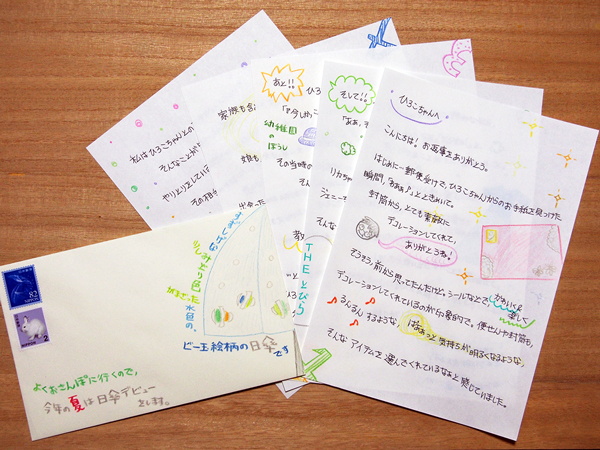 ひろこちゃんへ
こんにちは! お返事をありがとう。
はじめに一郵便受けで、ひろこちゃんからのお手紙を見つけた
瞬間、「わぁぁ♪」とときめいて。
封筒から、とても素敵に
デコレーションしてくれて、
ありがとうね!
そうそう、前から思ってたんだけど。シールなどで かわいく&楽しく
デコレーションしてくれているのが印象的で。便せんや封筒も、
るんるん するような、ぱぁぁっと気持ちが明るくなるような、
そんな アイテムを 選んでくれているなぁと 感じていました。
そして!!
「ああ、
リカちゃ
ジェニー
そんな
あと!!
ひろこ
「今しか
幼稚園
の
ぼうし
その当時の
そん
家族も含
娘も、
出会った
教
私は ひろこちゃんとの
そんなことが
やりとりしてい
その相手
THE とびら
水色の。
ビー玉絵柄の日傘です
82
NIPPON
2
NIPPON
よくおさんぽに行くので、
今年の夏は日傘デビュー
をします。